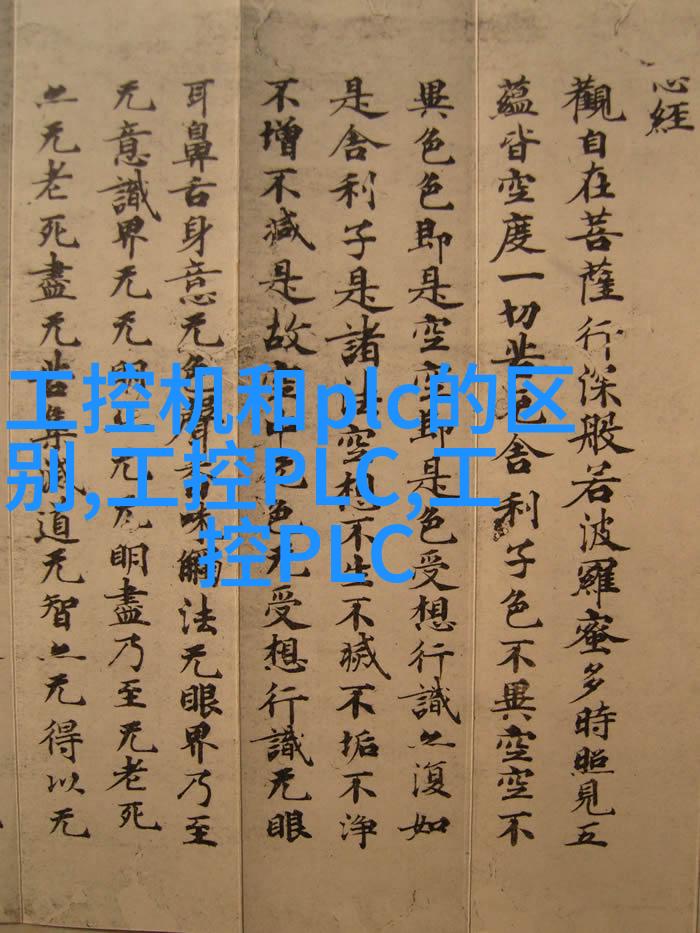 心经
觀自在菩薩行深般若波羅蜜多時照見五
蘊皆空度一切苦厄舍利子色不異空空不
異色色即是空空即是色受想行識亦復如
是舍利子是諸法空想不生不滅不垢不淨
不增不減是故空中无色无受想行識无眼
耳鼻舌身意无色聲香味觸法无眼界乃至
无意識界无无明亦无无明盡乃至无老死
亦无老死盡无苦集滅道无智亦无得以无
工控机和plc的区
别,工控PLC,工
控PLC